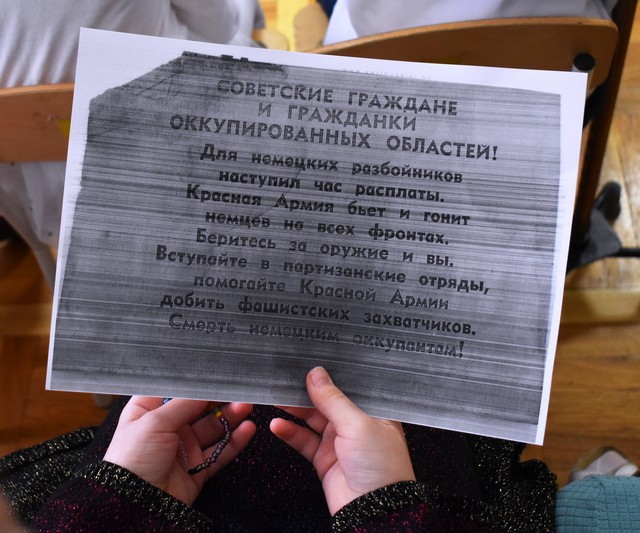 СОВЕТСКИЕ ГРАЖДАНЕ
И ГРАЖДАНКИ
ОККУПИРОВАННЫХ ОБЛАСТЕЙ!
Для немецких разбойников
наступил час расплаты.
Красная Армия бьет и гонит
немцев на всех фронтах.
Беритесь за оружие и вы.
Вступайте в партизанские отряды,
помогайте Красной Армии
добить фашистских захватчиков.
Смерть немецким оккупантам!